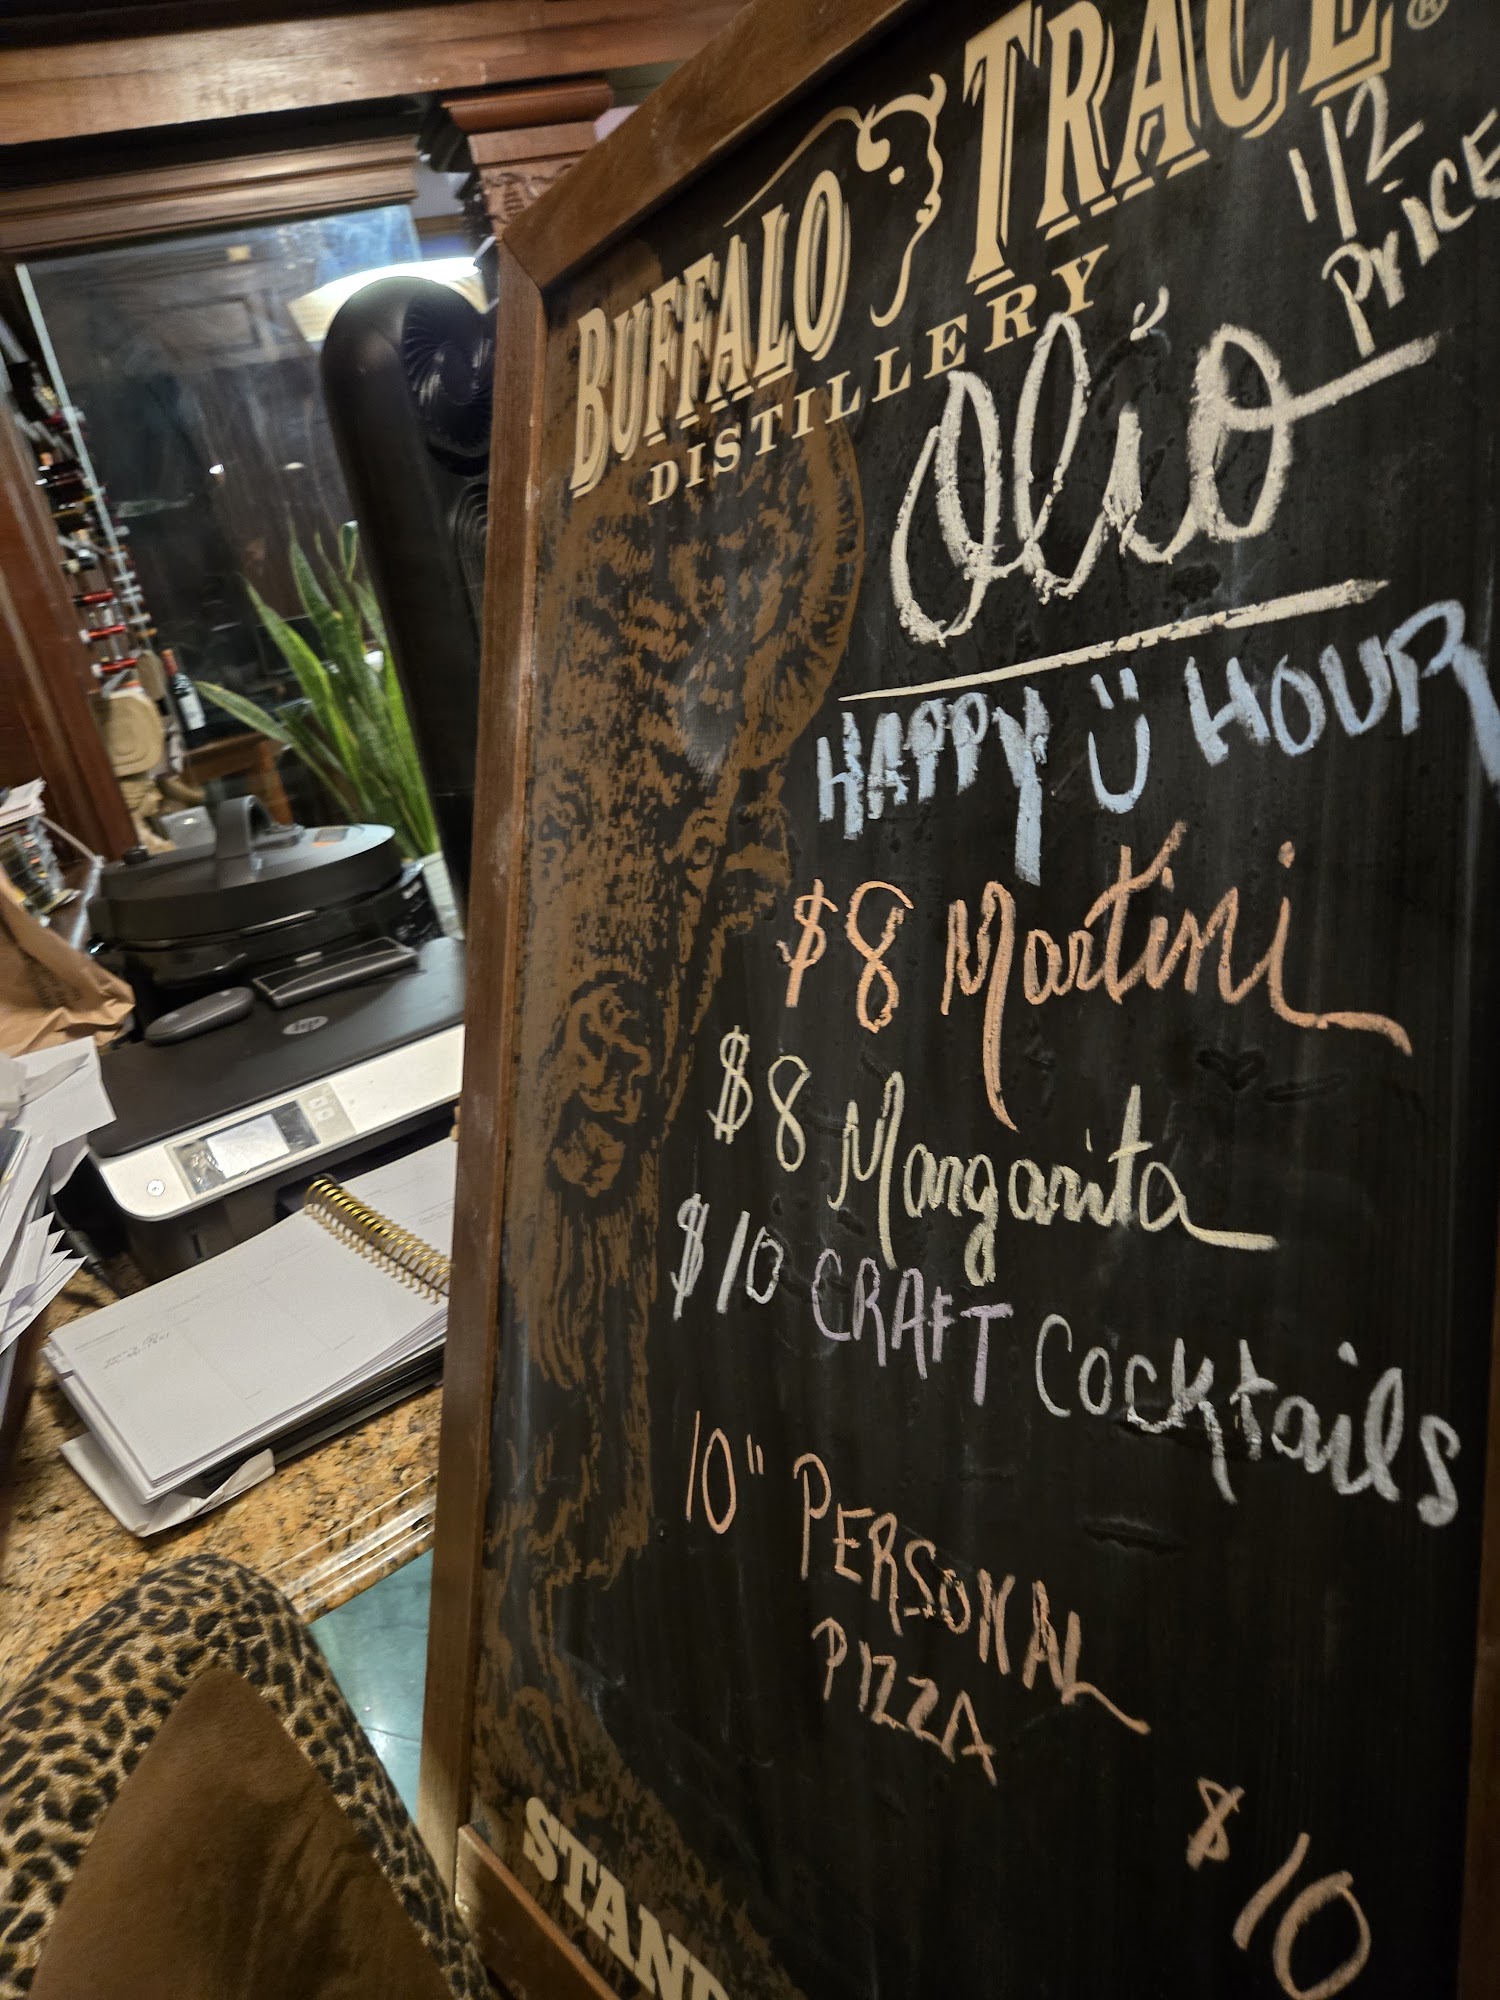 BUFFALO TRACE®
DISTILLERY
1/2
PRICE
Olio
HAPPY HOUR
$8 Martini
$8 Margarita
$10 CRAFT Cocktails
10" PERSONAL
PIZZA
$10
STAND
hp